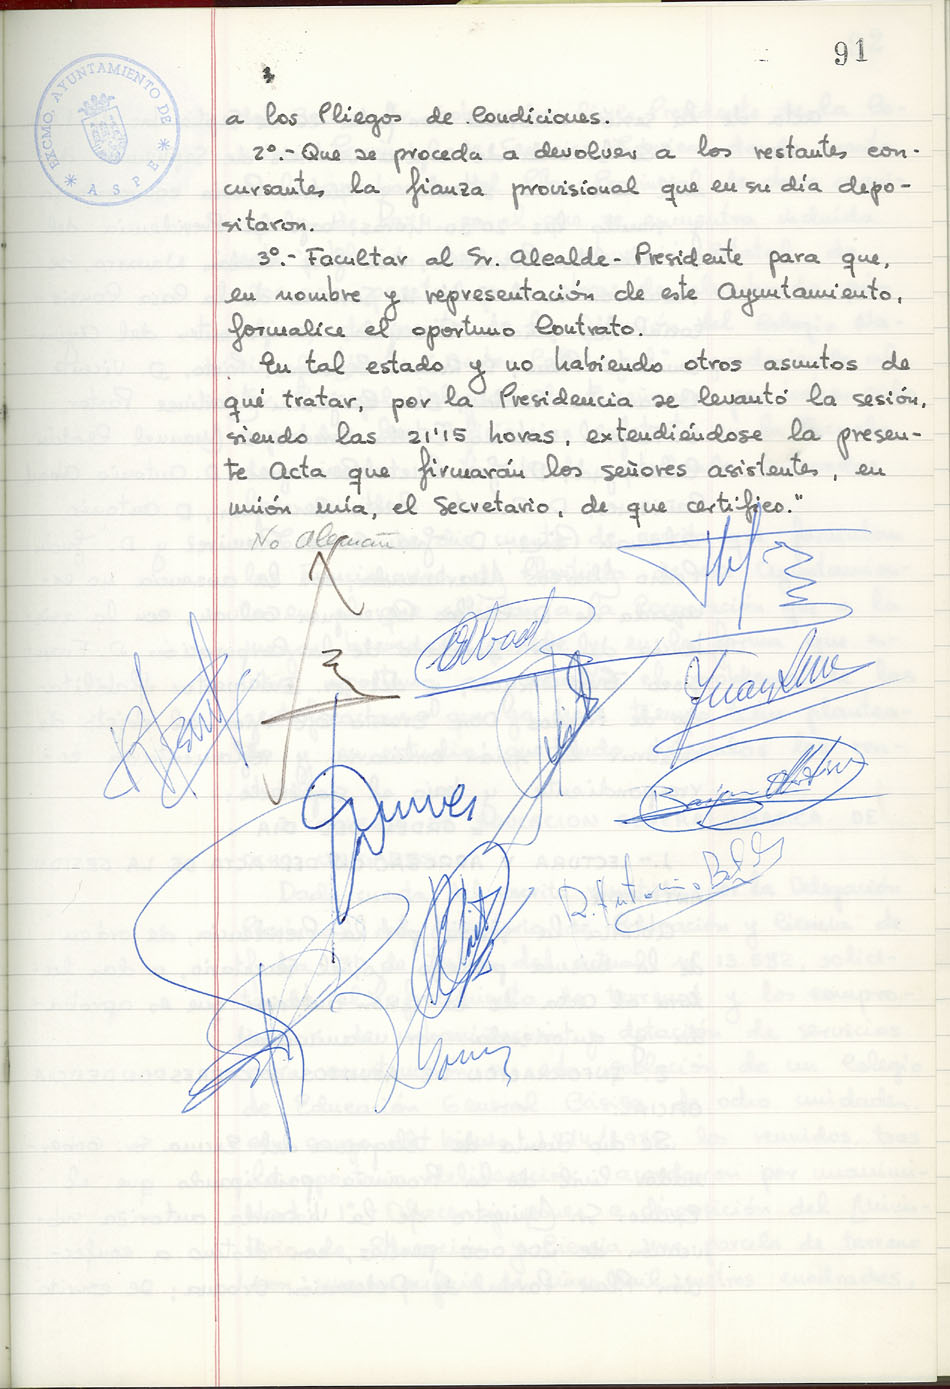 91
EXCMO. AYUNTAMIENTO DE
* ASPE *
a los Pliegos de Condiciones.
2º.- Que se proceda a devolver a los restantes con-
cursantes la fianza provisional que en su día depo-
sitaron.
3º.- Facultar al Sr. Alcalde-Presidente para que,
en nombre y representación de este Ayuntamiento,
formalice el oportuno Contrato.
En tal estado y no habiendo otros asuntos de
qué tratar, por la Presidencia se levantó la sesión,
siendo las 21'15 horas, extendiéndose la presen-
te Acta que firmarán los señores asistentes, en
unión mía, el Secretario, de que certifico."